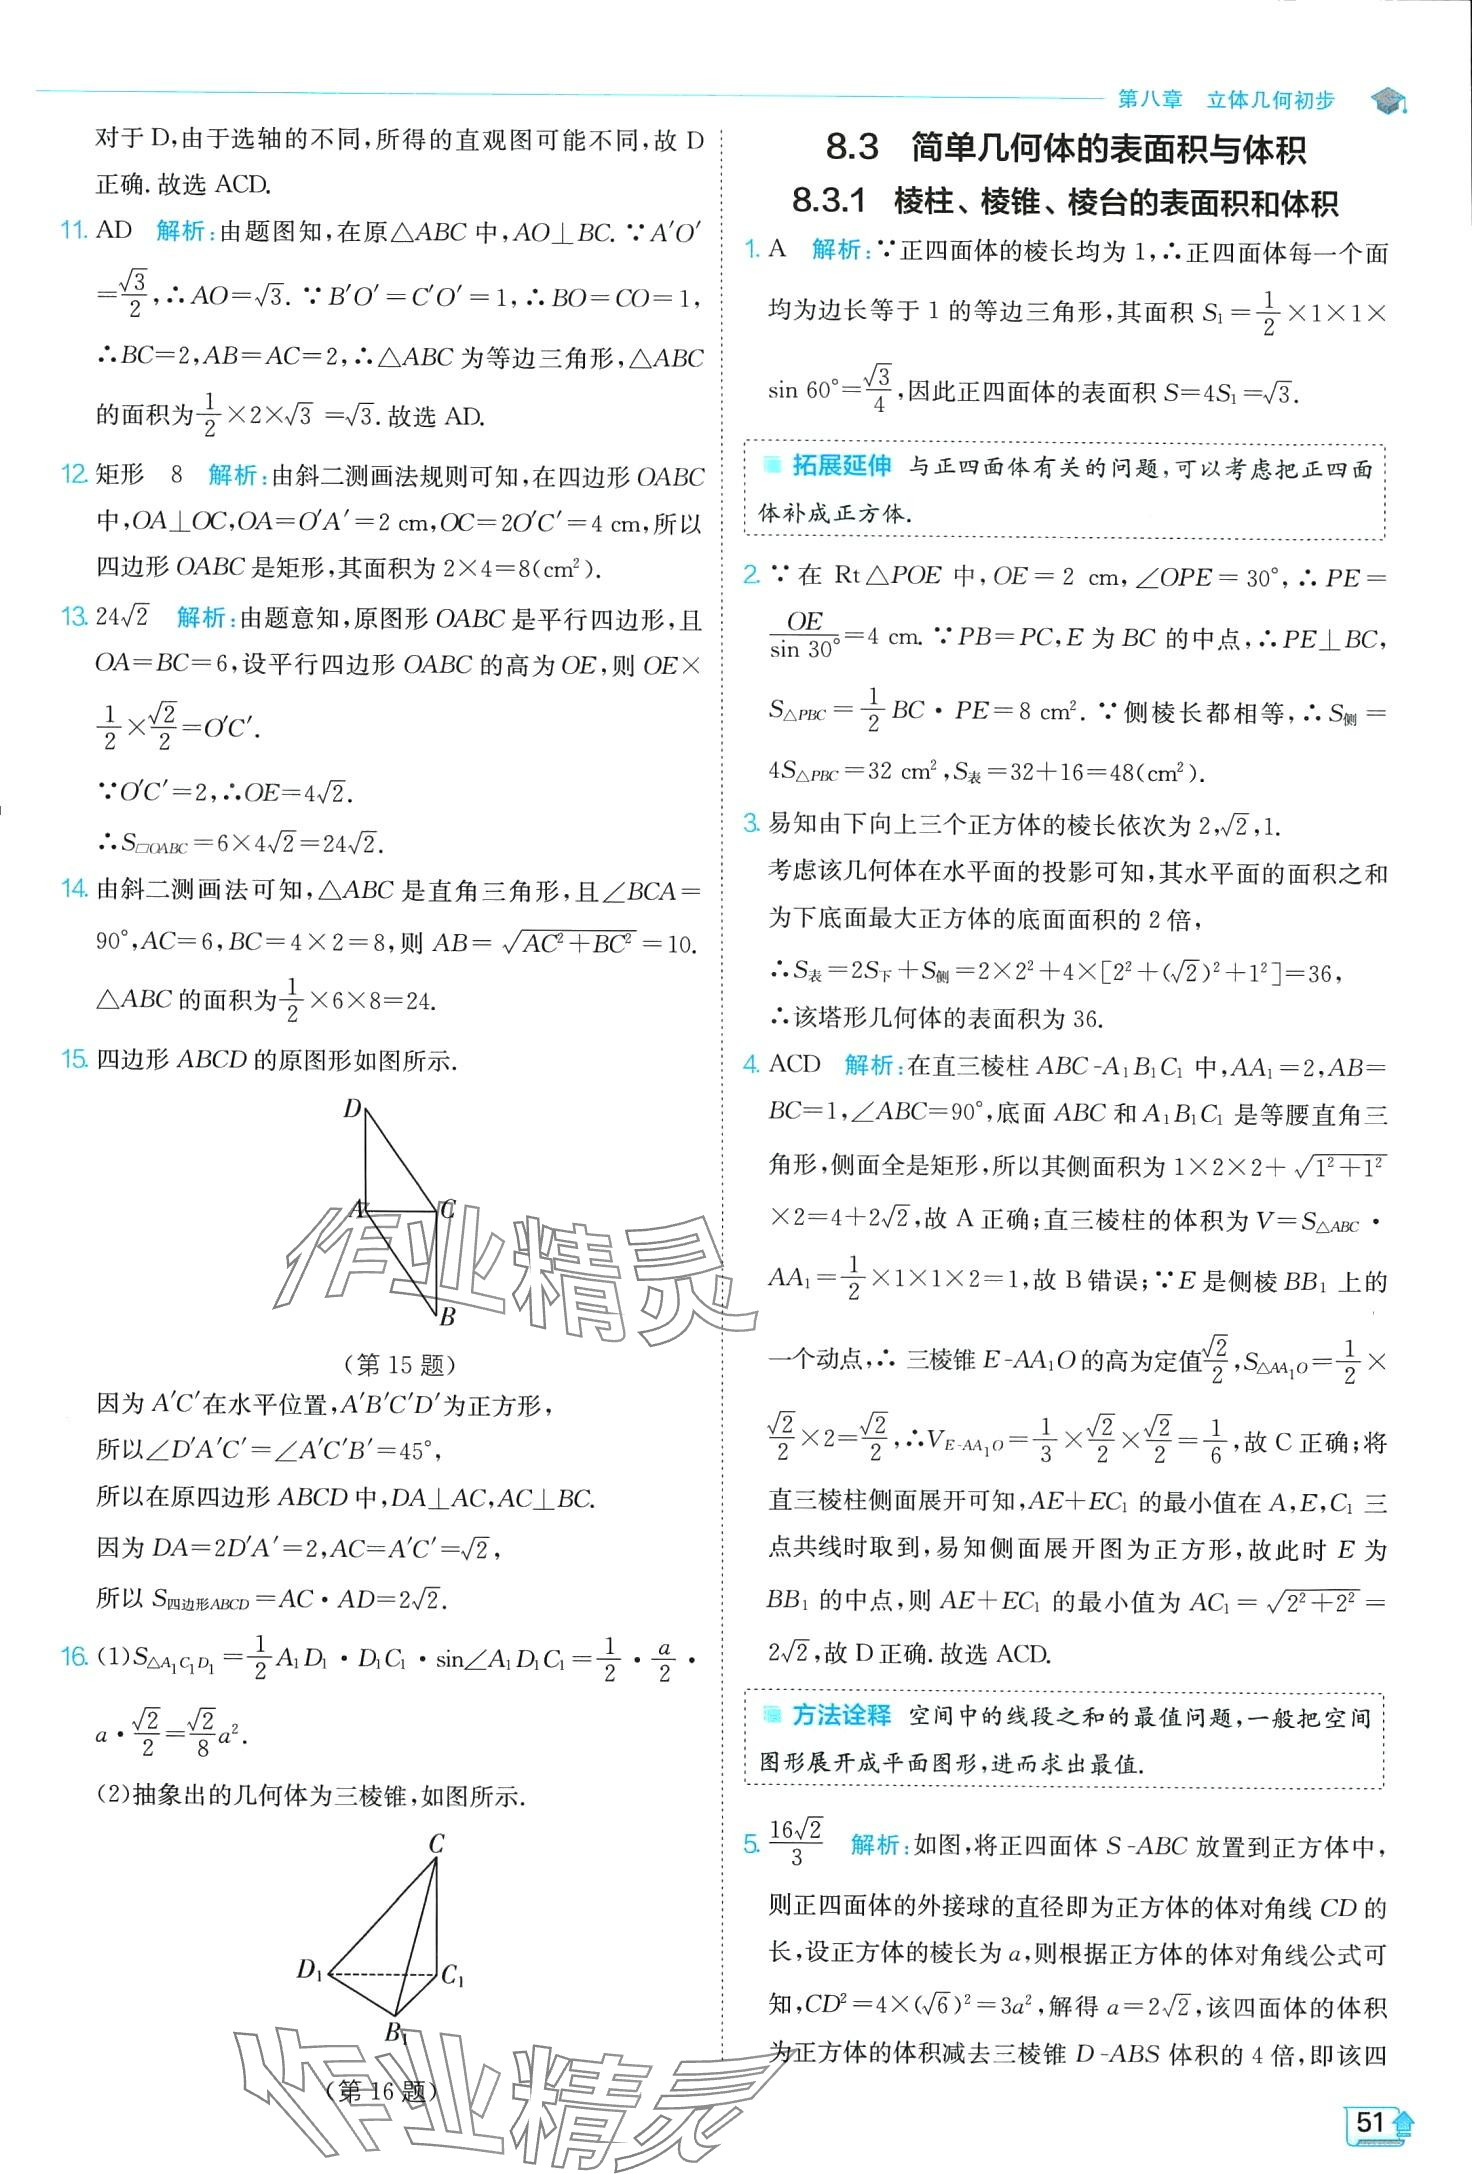 第八章 立体几何初步
对于 D,由于选轴的不同,所得的直观图可能不同,故 D
正确.故选 ACD.
11. AD 解析:由题图知,在原△ABC 中,AO⊥BC.∵A′O′
=√3/2,∴AO=√3.∵B′O′=C′O′=1,∴BO=CO=1,
∴BC=2,AB=AC=2,∴△ABC 为等边三角形,△ABC
的面积为1/2×2×√3=√3.故选 AD.
12. 矩形 8 解析:由斜二测画法规则可知,在四边形 OABC
中,OA⊥OC,OA=O′A′=2 cm,OC=2O′C′=4 cm,所以
四边形 OABC 是矩形,其面积为 2×4=8(cm²).
13. 24√2 解析:由题意知,原图形 OABC 是平行四边形,且
OA=BC=6,设平行四边形 OABC 的高为 OE,则 OE×
1/2×√2/2=O′C′.
∵O′C′=2,∴OE=4√2.
∴S▱OABC=6×4√2=24√2.
14. 由斜二测画法可知,△ABC 是直角三角形,且∠BCA=
90°,AC=6,BC=4×2=8,则 AB=√(AC²+BC²)=10.
△ABC 的面积为1/2×6×8=24.
15. 四边形 ABCD 的原图形如图所示.
D
A
C
B
(第 15 题)
因为 A′C′在水平位置,A′B′C′D′为正方形,
所以∠D′A′C′=∠A′C′B′=45°,
所以在原四边形 ABCD 中,DA⊥AC,AC⊥BC.
因为 DA=2D′A′=2,AC=A′C′=√2,
所以 S四边形ABCD=AC·AD=2√2.
16. (1)S△A₁C₁D₁=1/2A₁D₁·D₁C₁·sin∠A₁D₁C₁=1/2·a/2·
a·√2/2=√2/8a².
(2)抽象出的几何体为三棱锥,如图所示.
C
D₁
C₁
B₁
(第 16 题)
8.3 简单几何体的表面积与体积
8.3.1 棱柱、棱锥、棱台的表面积和体积
1. A 解析:∵正四面体的棱长均为 1,∴正四面体每一个面
均为边长等于 1 的等边三角形,其面积 S₁=1/2×1×1×
sin 60°=√3/4,因此正四面体的表面积 S=4S₁=√3.
拓展延伸 与正四面体有关的问题,可以考虑把正四面
体补成正方体.
2. ∵在 Rt△POE 中,OE=2 cm,∠OPE=30°,∴PE=
OE/sin 30°=4 cm.∵PB=PC,E 为 BC 的中点,∴PE⊥BC,
S△PBC=1/2BC·PE=8 cm².∵侧棱长都相等,∴S侧=
4S△PBC=32 cm²,S表=32+16=48(cm²).
3. 易知由下向上三个正方体的棱长依次为 2,√2,1.
考虑该几何体在水平面的投影可知,其水平面的面积之和
为下底面最大正方体的底面面积的 2 倍,
∴S表=2S下+S侧=2×2²+4×[2²+(√2)²+1²]=36,
∴该塔形几何体的表面积为 36.
4. ACD 解析:在直三棱柱 ABC-A₁B₁C₁ 中,AA₁=2,AB=
BC=1,∠ABC=90°,底面 ABC 和 A₁B₁C₁ 是等腰直角三
角形,侧面全是矩形,所以其侧面积为 1×2×2+√(1²+1²)
×2=4+2√2,故 A 正确;直三棱柱的体积为 V=S△ABC·
AA₁=1/2×1×1×2=1,故 B 错误;∵E 是侧棱 BB₁ 上的
一个动点,∴三棱锥 E-AA₁O 的高为定值√2/2,S△AA₁O=1/2×
√2/2×2=√2/2,∴V_E-AA₁O=1/3×√2/2×√2/2=1/6,故 C 正确;将
直三棱柱侧面展开可知,AE+EC₁ 的最小值在 A,E,C₁ 三
点共线时取到,易知侧面展开图为正方形,故此时 E 为
BB₁ 的中点,则 AE+EC₁ 的最小值为 AC₁=√(2²+2²)=
2√2,故 D 正确.故选 ACD.
方法诠释 空间中的线段之和的最值问题,一般把空间
图形展开成平面图形,进而求出最值.
5. 16√2/3 解析:如图,将正四面体 S-ABC 放置到正方体中,
则正四面体的外接球的直径即为正方体的体对角线 CD 的
长,设正方体的棱长为 a,则根据正方体的体对角线公式可
知,CD²=4×(√6)²=3a²,解得 a=2√2,该四面体的体积
为正方体的体积减去三棱锥 D-ABS 体积的 4 倍,即该四
51
作业精灵
作业精灵